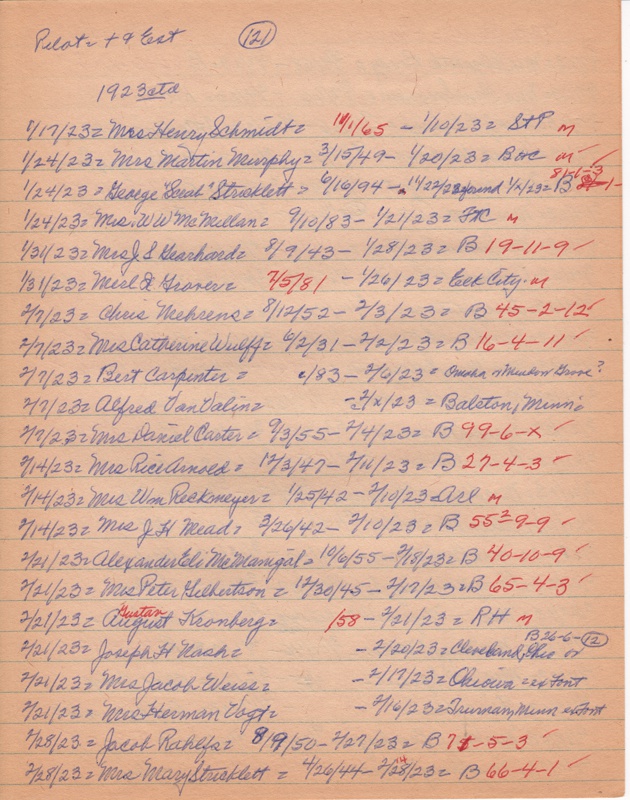 Pilot = + & Ext (121)
1923 ctd
1/17/23 = Mrs Henry Schmidt = 11/1/65 - 1/10/23 = StP m
1/24/23 = Mrs Martin Murphy = 3/15/49 - 1/20/23 = BoC m
1/24/23 = George "Scrub" Stricklett = 6/16/94 - 11/22/22 found 1/x/23 = B 81-6-3
1/24/23 = Mrs. W W McMillan = 9/10/83 - 1/21/23 = m
1/31/23 = Mrs J S Gearhard = 8/9/43 - 1/28/23 = B 19-11-9 ✓
1/31/23 = Grover = 7/5/81 - 1/26/23 = Elk City. m
2/7/23 = Chris Mehrens = 8/12/52 - 2/3/23 = B 45-2-12 ✓
2/7/23 = Mrs Catherine Wulff = 6/2/31 - 2/2/23 = B 16-4-11 ✓
2/7/23 = Bert Carpenter = c/83 - 2/6/23 = Omaha or Meadow Grove?
2/7/23 = Alfred Van Valin = - 2/x/23 = Balston, Minn =
2/7/23 = Mrs Daniel Carter = 9/3/55 - 2/4/23 = B 99-6-x ✓
2/14/23 = Mrs Rice Arnold = 12/3/47 - 2/11/23 = B 27-4-3 ✓
2/14/23 = Mrs Wm Reckmeyer = 1/25/42 - 2/10/23 = Arl m
2/14/23 = Mrs J H Mead = 3/26/42 - 2/10/23 = B 55²-9-9 ✓
2/21/23 = Alexander Eli McManigal = 10/6/55 - 2/18/23 = B 40-10-9 ✓
2/21/23 = Mrs Peter Gilbertson = 12/30/45 - 2/17/23 = B 65-4-3 ✓
Gustav
2/21/23 = August Kronberg = /58 - 2/21/23 = RH m
B 26-6-(12)
2/21/23 = Joseph H Nash = - 2/20/23 = Cleveland, Ohio or
2/21/23 = Mrs Jacob Weiss = - 2/17/23 = Ohiowa = ex Font
2/21/23 = Mrs Herman Vogt = - 2/16/23 = Truman, Minn ex Font
2/28/23 = Jacob Rahlfs = 8/9/50 - 2/27/23 = B 7-5-3 ✓
2/28/23 = Mrs Mary Stricklett = 4/26/44 - 2/28/23 = B 66-4-1 ✓